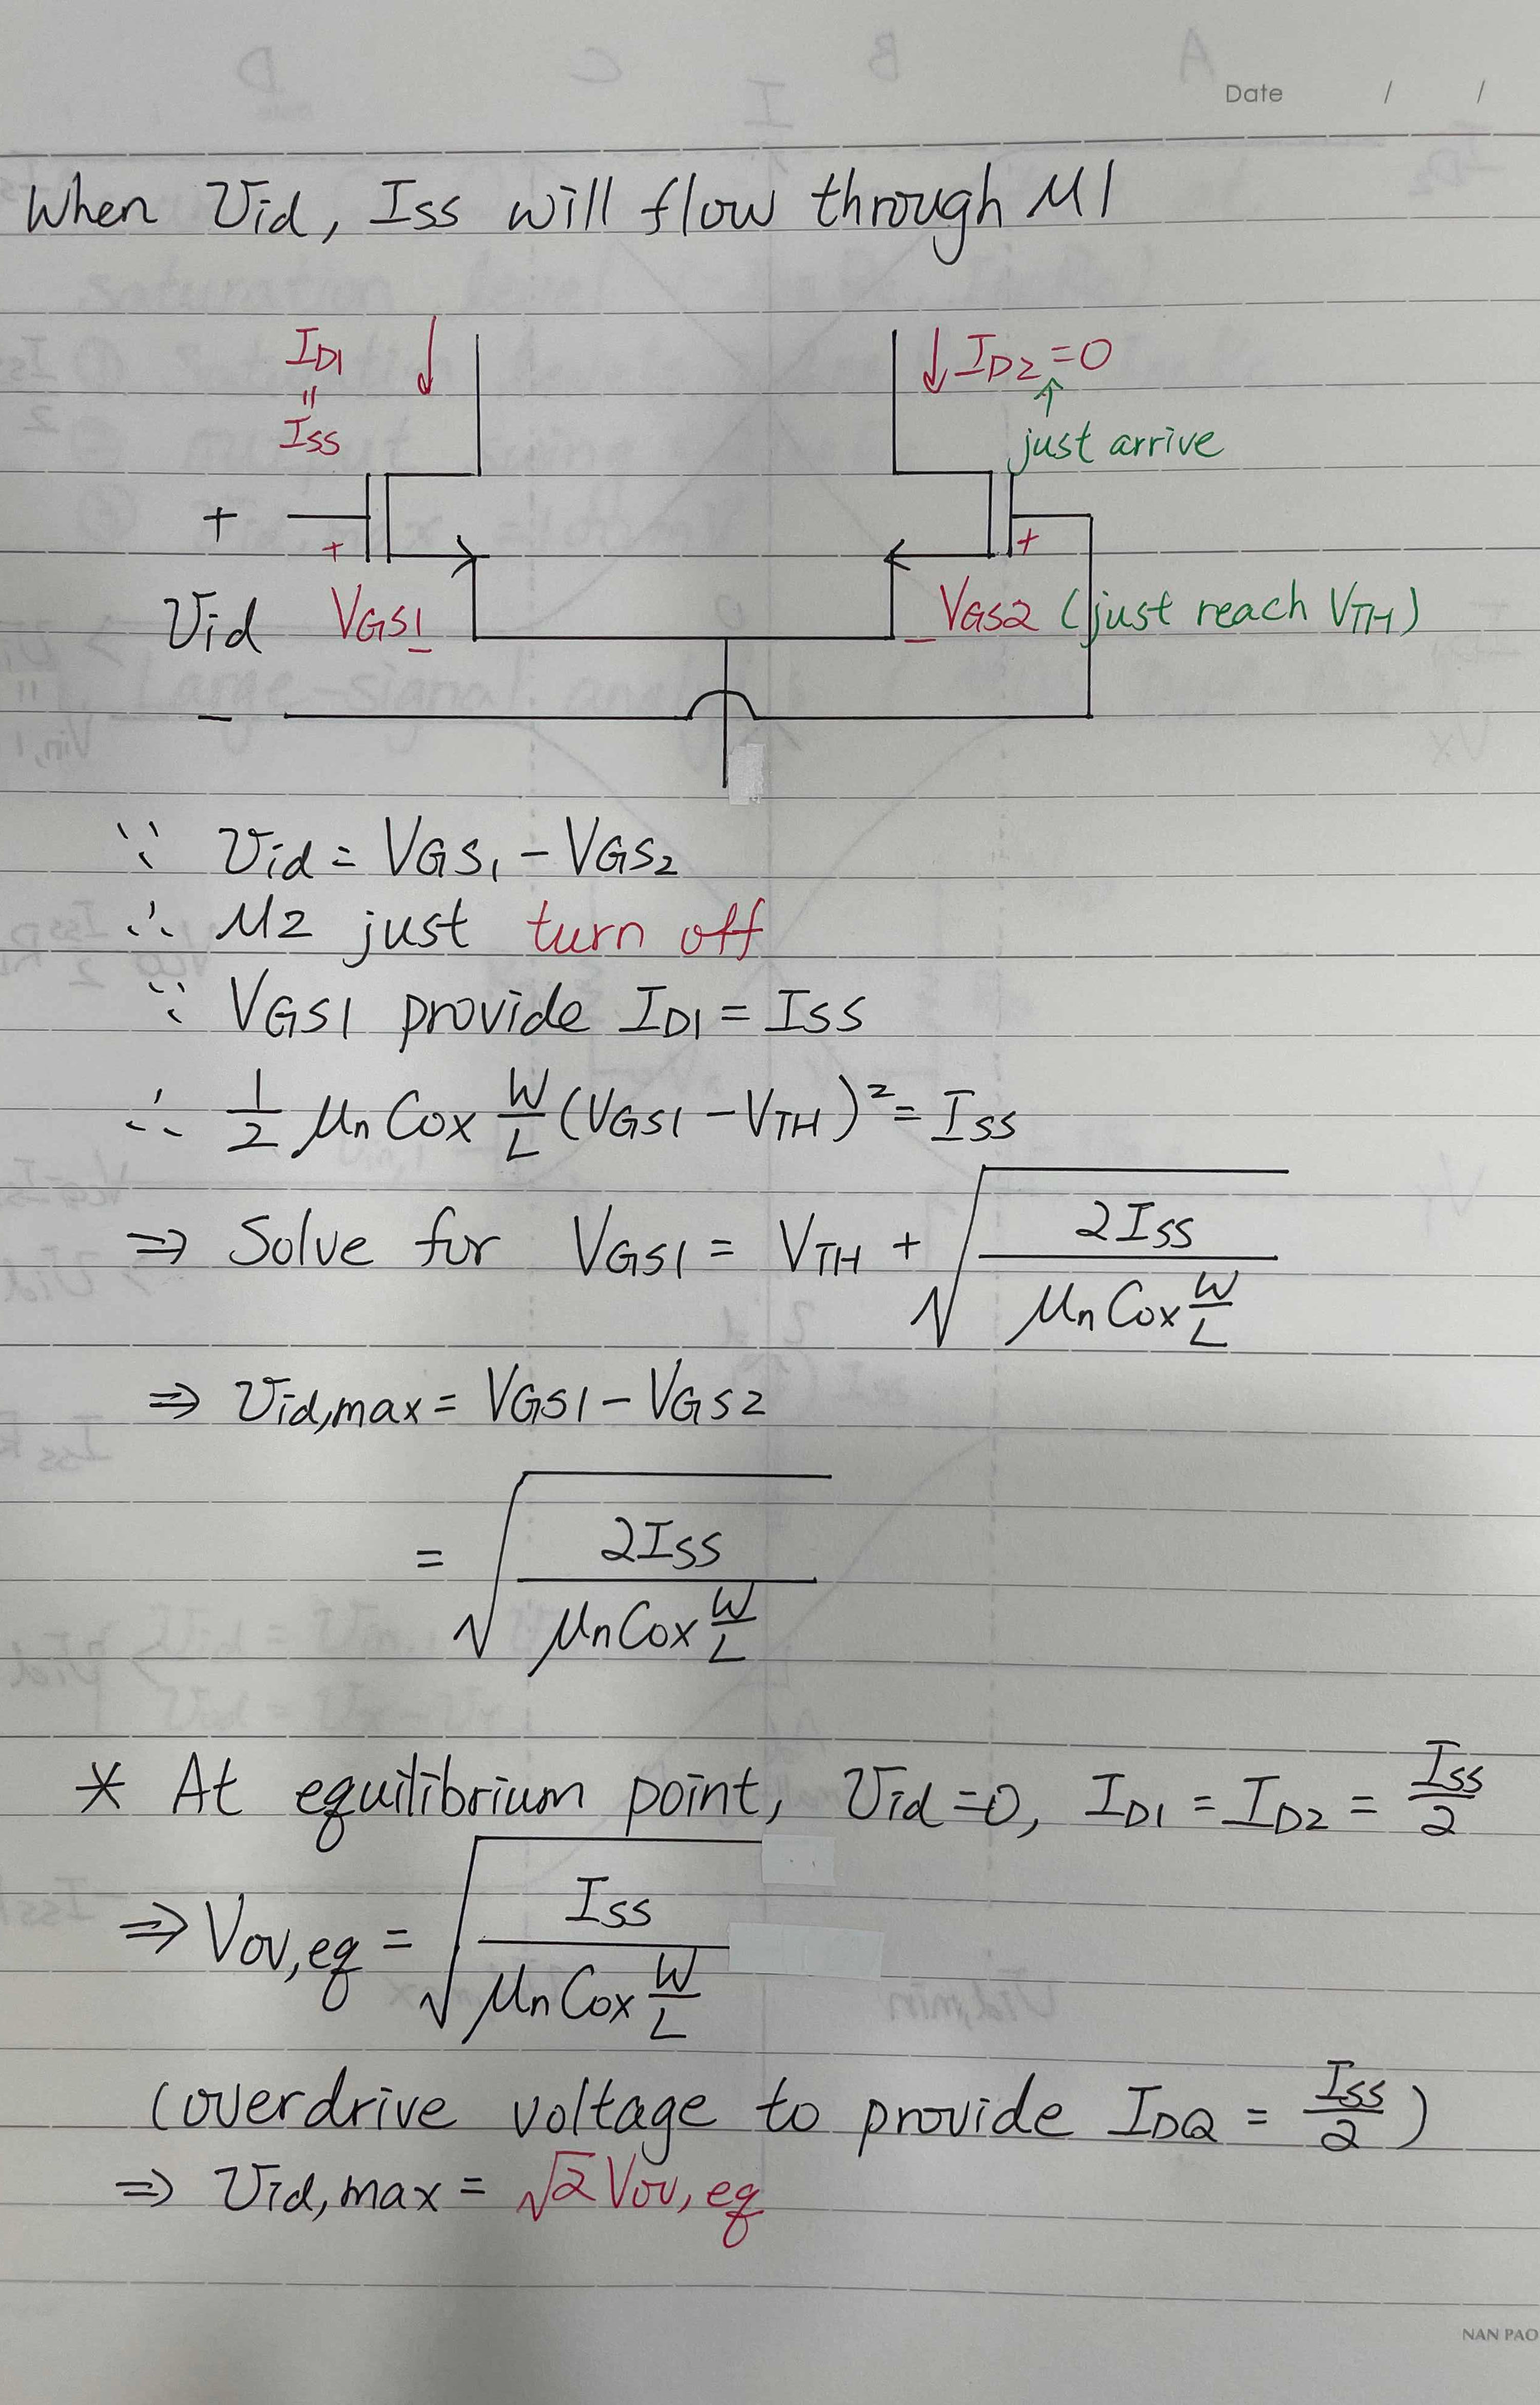 Date / /
When Vid, ISS will flow through M1
ID1 ↓
=
ISS
↓ ID2 = 0
↑
just arrive
+
+
+
Vid VGS1
-
- VGS2 (just reach VTH)
-
∵ Vid = VGS1 - VGS2
∴ M2 just turn off
∵ VGS1 provide ID1 = ISS
∴ 1/2 μn Cox W/L (VGS1 - VTH)² = ISS
⇒ Solve for VGS1 = VTH + √(2ISS / μn Cox W/L)
⇒ Vid,max = VGS1 - VGS2
= √(2ISS / μn Cox W/L)
* At equitibrium point, Vid = 0, ID1 = ID2 = ISS/2
⇒ Vov,eq = √(ISS / μn Cox W/L)
(overdrive voltage to provide IDQ = ISS/2)
⇒ Vid,max = √2 Vov,eq
NAN PAO